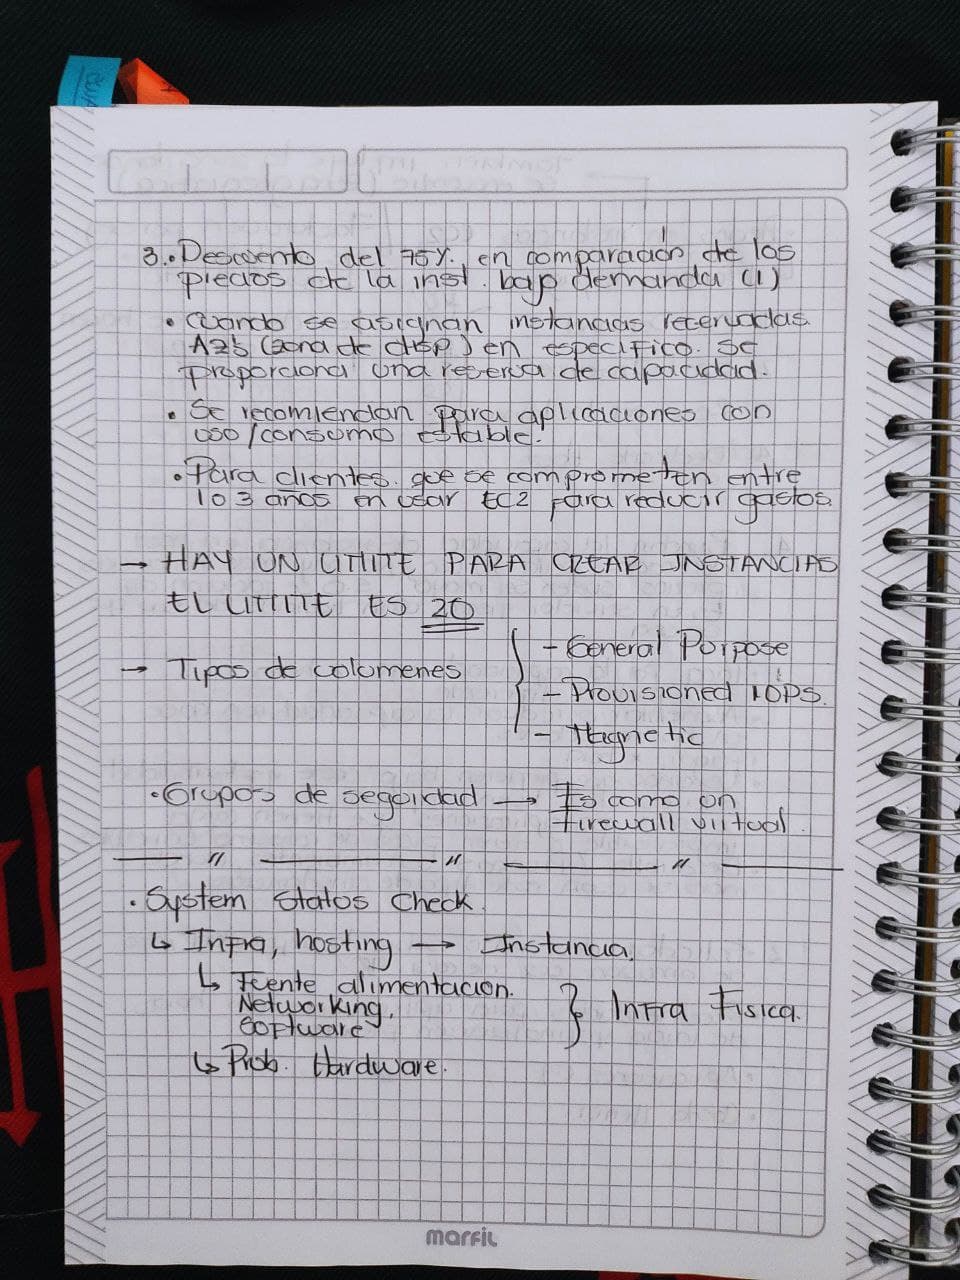 3.• Descuento del 75% en comparación de los
precios de la inst. bajo demanda (1)
• Cuando se asignan instancias reservadas
AZs (zona de disp) en específico. Se
proporciona una reserva de capacidad.
• Se recomiendan para aplicaciones con
uso/consumo estable.
• Para clientes que se comprometen entre
1 o 3 años en usar EC2 para reducir gastos.
→ HAY UN LIMITE PARA CREAR INSTANCIAS
EL LIMITE ES 20
→ Tipos de volumenes { - General Purpose
- Provisioned IOPS.
- Magnetic
• Grupos de seguridad → Es como un
Firewall virtual.
• System Status Check.
↳ Infra, hosting → Instancia.
↳ Fuente alimentación.
Networking.
Software
} Infra Fisica.
↳ Prob. Hardware.
marfil